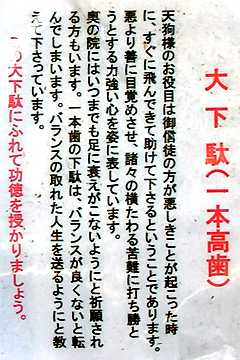 大下駄(一本高歯)
天狗様のお役目は御信徒の方が悪しきことが起こった時
に、すぐに飛んできて助けて下さるということであります。
悪より善に目覚めさせ、諸々の横たわる苦難に打ち勝と
うとする力強い心を姿に表しています。
奥の院にはいつまでも足に衰えがこないようにと祈願され
る方もいます。一本歯の下駄は、バランスが良くないと転
んでしまいます。バランスの取れた人生を送るようにと教
えて下さっています。
の大下駄にふれて功徳を授かりましょう。